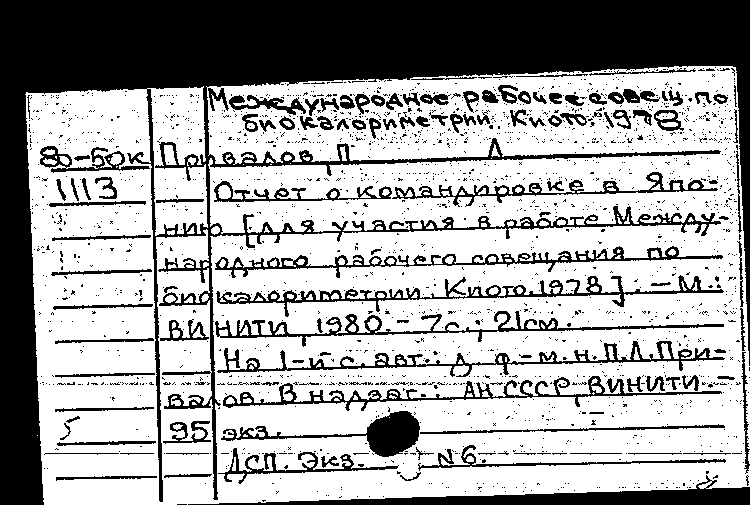 Международное рабочее совещ. по
биокалориметрии. Киото. 1978
80-60к Привалов, П Л
1113 Отчет о командировке в Япо-
нию [для участия в работе Между-
народного рабочего совещания по
биокалориметрии. Киото. 1978]. - М.:
ВИНИТИ, 1980. - 7с.; 21см.
На 1-й с. авт.: д. ф.-м. н. П.Л. При-
валов. В надзаг.: АН СССР, ВИНИТИ. -
5 95 экз.
ДСП. Экз. N6.